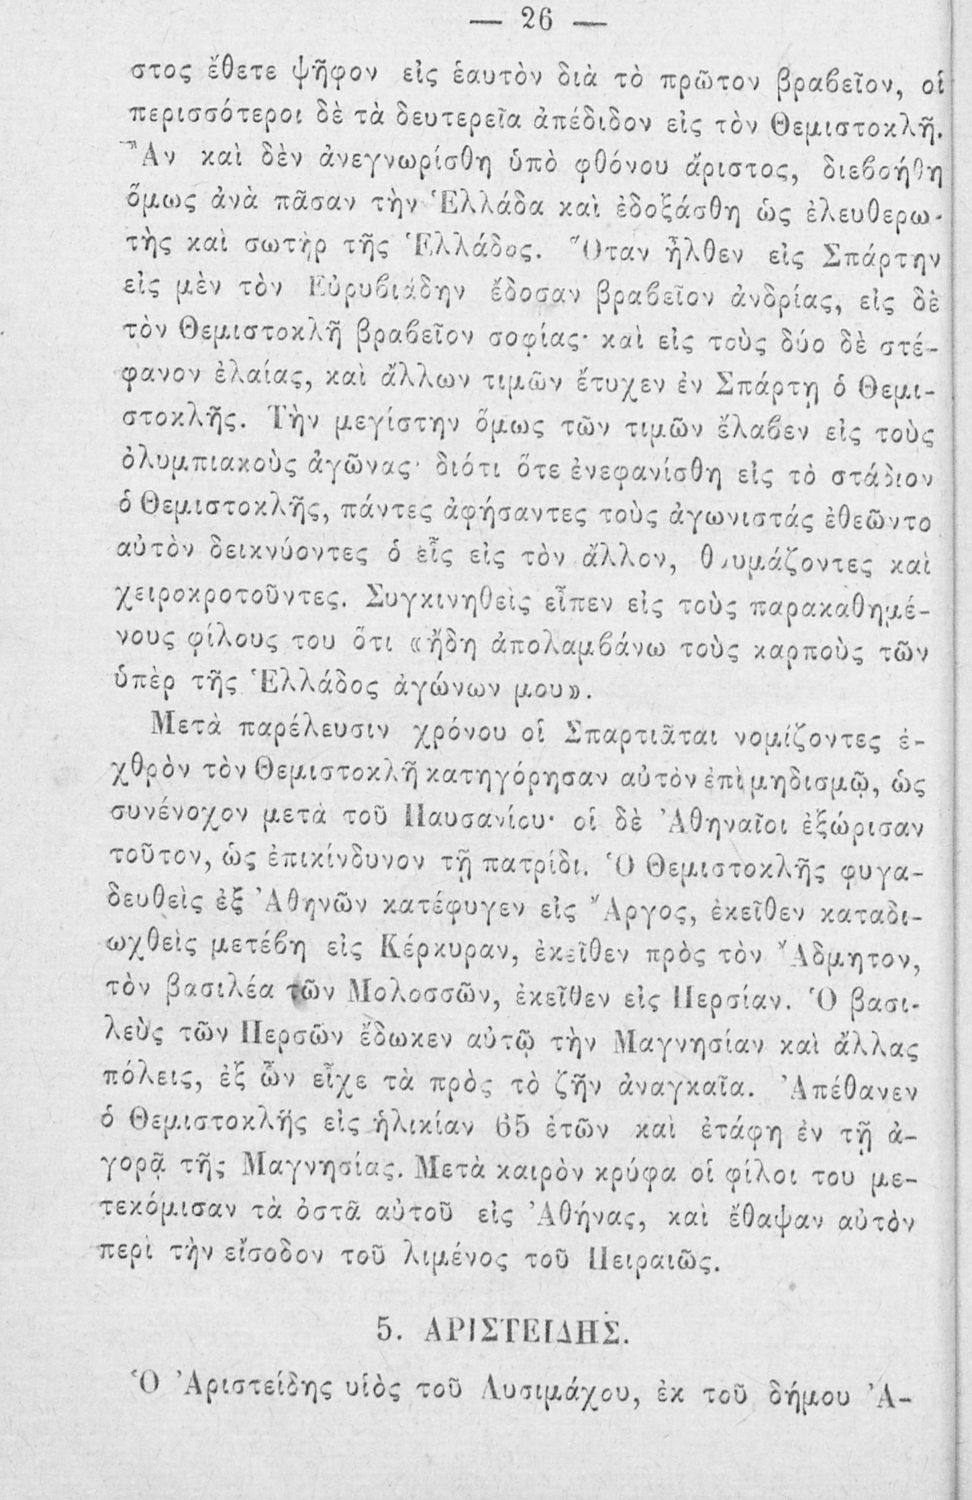 — 26 —
στος ἔθετε ψῆφον εἰς ἑαυτὸν διὰ τὸ πρῶτον βραβεῖον, οἱ
περισσότεροι δὲ τὰ δευτερεῖα ἀπέδιδον εἰς τὸν Θεμιστοκλῆ.
Ἂν καὶ δὲν ἀνεγνωρίσθη ὑπὸ φθόνου ἄριστος, διεβοήθη
ὅμως ἀνὰ πᾶσαν τὴν Ἑλλάδα καὶ ἐδοξάσθη ὡς ἐλευθερω-
τὴς καὶ σωτὴρ τῆς Ἑλλάδος. Ὅταν ἦλθεν εἰς Σπάρτην
εἰς μὲν τὸν Εὐρυβιάδην ἔδοσαν βραβεῖον ἀνδρίας, εἰς δὲ
τὸν Θεμιστοκλῆ βραβεῖον σοφίας· καὶ εἰς τοὺς δύο δὲ στέ-
φανον ἐλαίας, καὶ ἄλλων τιμῶν ἔτυχεν ἐν Σπάρτῃ ὁ Θεμι-
στοκλῆς. Τὴν μεγίστην ὅμως τῶν τιμῶν ἔλαβεν εἰς τοὺς
ὀλυμπιακοὺς ἀγῶνας· διότι ὅτε ἐνεφανίσθη εἰς τὸ στάδιον
ὁ Θεμιστοκλῆς, πάντες ἀφήσαντες τοὺς ἀγωνιστάς ἐθεῶντο
αὐτὸν δεικνύοντες ὁ εἷς εἰς τὸν ἄλλον, θαυμάζοντες καὶ
χειροκροτοῦντες. Συγκινηθεὶς εἶπεν εἰς τοὺς παρακαθημέ-
νους φίλους του ὅτι «ἤδη ἀπολαμβάνω τοὺς καρποὺς τῶν
ὑπὲρ τῆς Ἑλλάδος ἀγώνων μου».
Μετὰ παρέλευσιν χρόνου οἱ Σπαρτιᾶται νομίζοντες ἐ-
χθρὸν τὸν Θεμιστοκλῆ κατηγόρησαν αὐτὸν ἐπὶ μηδισμῷ, ὡς
συνένοχον μετὰ τοῦ Παυσανίου· οἱ δὲ Ἀθηναῖοι ἐξώρισαν
τοῦτον, ὡς ἐπικίνδυνον τῇ πατρίδι. Ὁ Θεμιστοκλῆς φυγα-
δευθεὶς ἐξ Ἀθηνῶν κατέφυγεν εἰς Ἄργος, ἐκεῖθεν καταδι-
ωχθεὶς μετέβη εἰς Κέρκυραν, ἐκεῖθεν πρὸς τὸν Ἄδμητον,
τὸν βασιλέα τῶν Μολοσσῶν, ἐκεῖθεν εἰς Περσίαν. Ὁ βασι-
λεὺς τῶν Περσῶν ἔδωκεν αὐτῷ τὴν Μαγνησίαν καὶ ἄλλας
πόλεις, ἐξ ὧν εἶχε τὰ πρὸς τὸ ζῆν ἀναγκαῖα. Ἀπέθανεν
ὁ Θεμιστοκλῆς εἰς ἡλικίαν 65 ἐτῶν καὶ ἐτάφη ἐν τῇ ἀ-
γορᾷ τῆς Μαγνησίας. Μετὰ καιρὸν κρύφα οἱ φίλοι του με-
τεκόμισαν τὰ ὀστᾶ αὐτοῦ εἰς Ἀθήνας, καὶ ἔθαψαν αὐτὸν
περὶ τὴν εἴσοδον τοῦ λιμένος τοῦ Πειραιῶς.
5. ΑΡΙΣΤΕΙΔΗΣ.
Ὁ Ἀριστείδης υἱὸς τοῦ Λυσιμάχου, ἐκ τοῦ δήμου Ἀ-